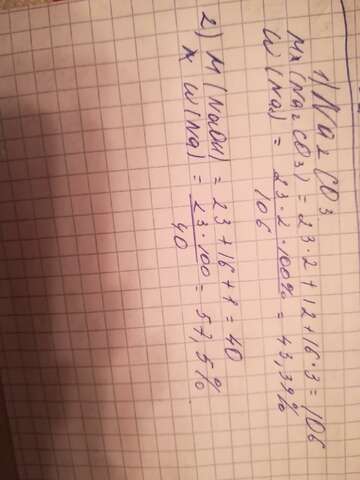 1) Na2CO3
Mr (Na2CO3) = 23·2 + 12 + 16·3 = 106
W (Na) = 23·2·100% / 106 = 43,39%
2) M (NaOH) = 23 + 16 + 1 = 40
W (Na) = 23·100 / 40 = 57,5%